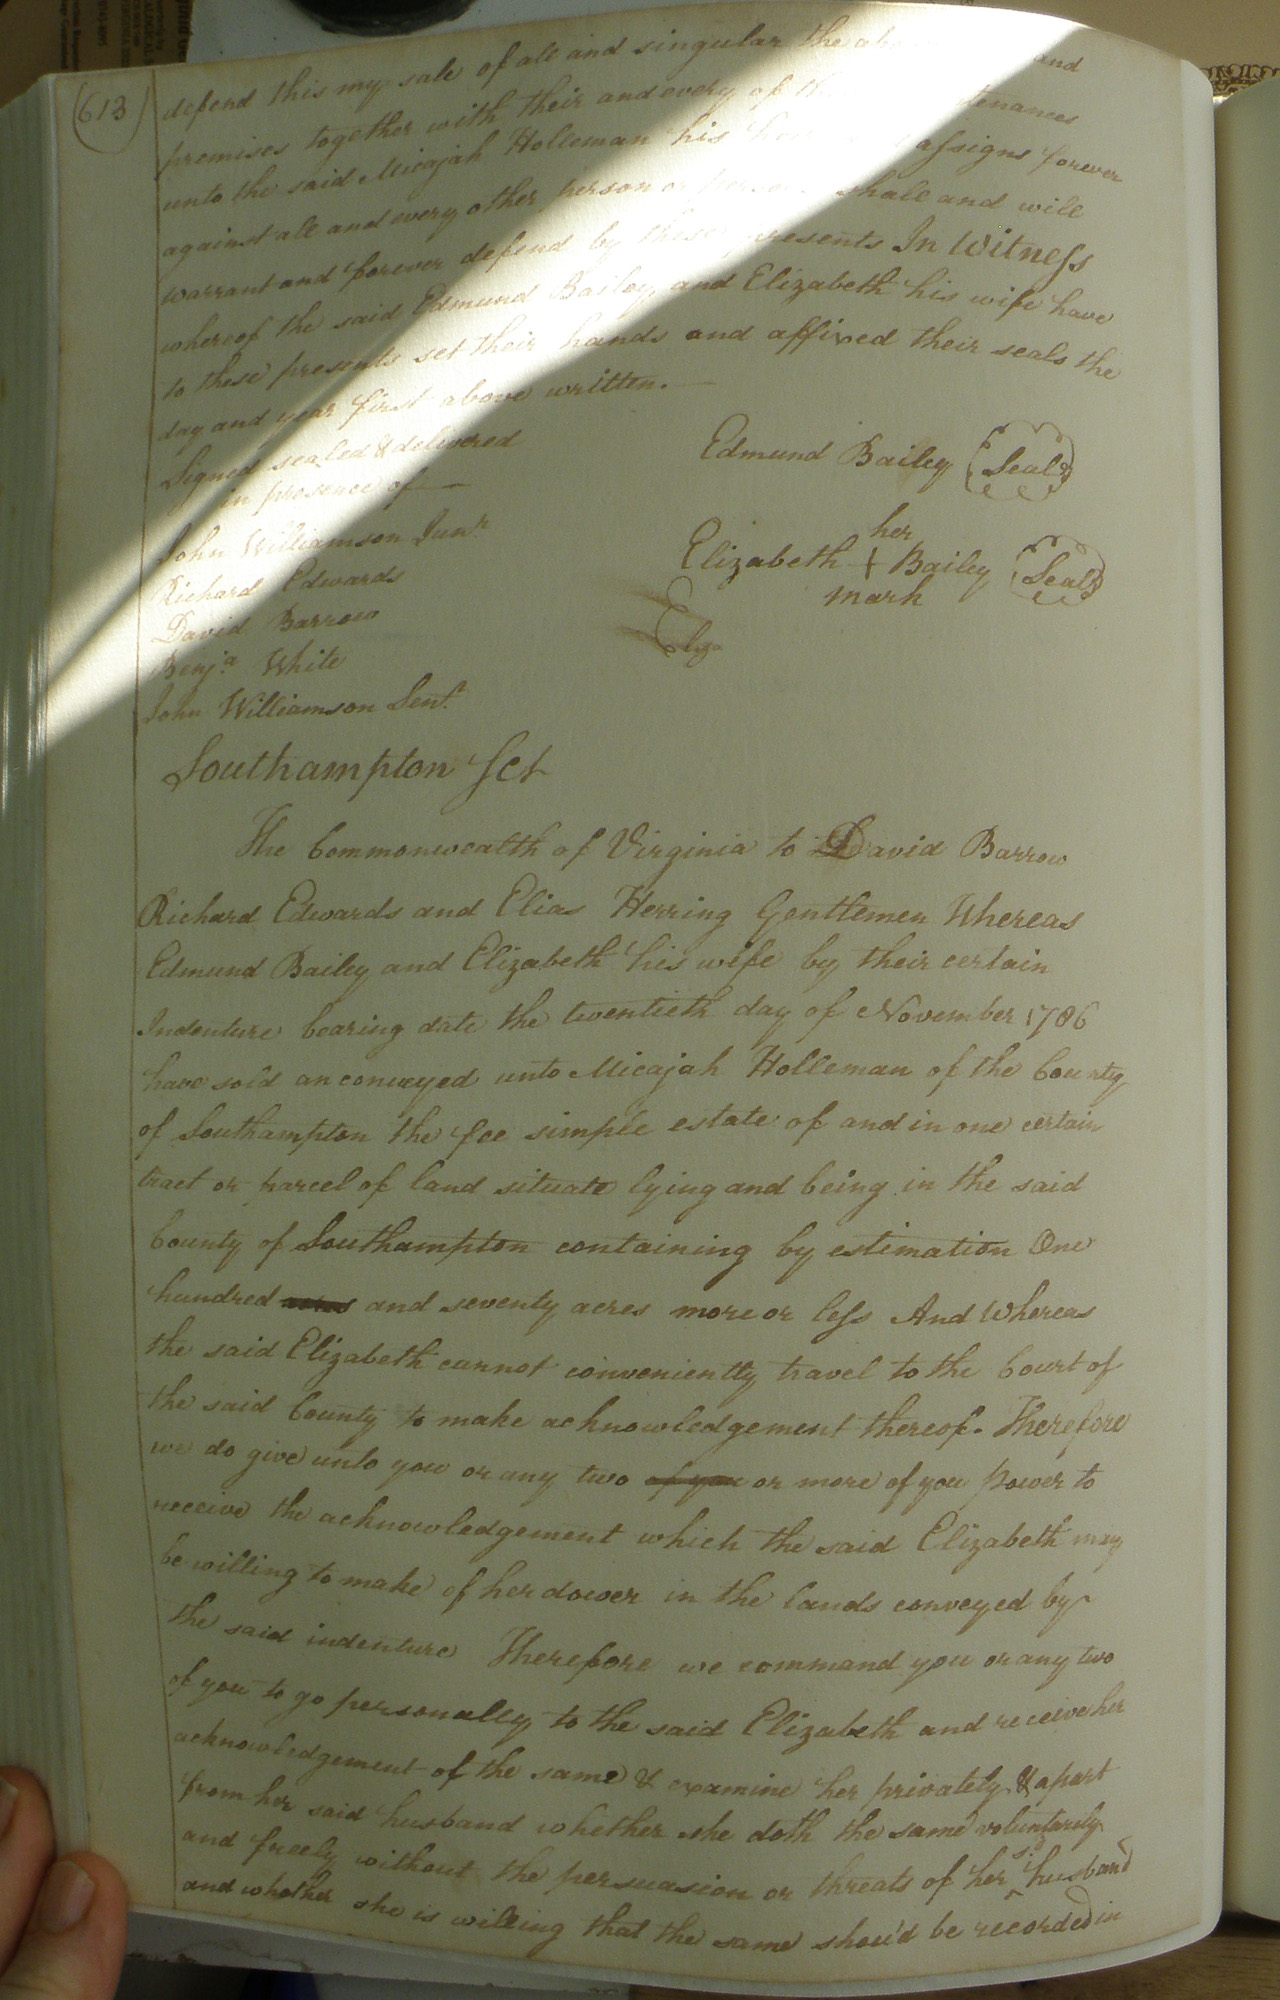 (613)
defend this my sale of all and singular the and
premises together with their and every of
unto the said Micajah Holleman his assigns forever
against all and every other person or shall and will
warrant and forever defend by these presents In Witness
whereof the said Edmund Bailey and Elizabeth his wife have
to these presents set their hands and affixed their seals the
day and year first above written.
Signed sealed & delivered
in presence of
Edmund Bailey (Seal)
John Williamson Junr
Richard Edwards
David Barrow
Benja White
John Williamson Senr
her
Elizabeth + Bailey (Seal)
mark
Eliz
Southampton Sct
The Commonwealth of Virginia to David Barrow
Richard Edwards and Elias Herring Gentlemen Whereas
Edmund Bailey and Elizabeth his wife by their certain
Indenture bearing date the twentieth day of November 1786
have sold an conveyed unto Micajah Holleman of the County
of Southampton the fee simple estate of and in one certain
tract or parcel of land situate lying and being in the said
County of Southampton containing by estimation One
hundred and seventy acres more or less And Whereas
the said Elizabeth cannot conveniently travel to the Court of
the said County to make acknowledgement thereof. Therefore
we do give unto you or any two of you or more of you power to
receive the acknowledgement which the said Elizabeth may
be willing to make of her dower in the lands conveyed by
the said indenture Therefore we command you or any two
of you to go personally to the said Elizabeth and receive her
acknowledgement of the same & examine her privately & apart
from her said husband whether she doth the same voluntarily
and freely without the persuasion or threats of her sd husband
and whether she is willing that the same shou'd be recorded in